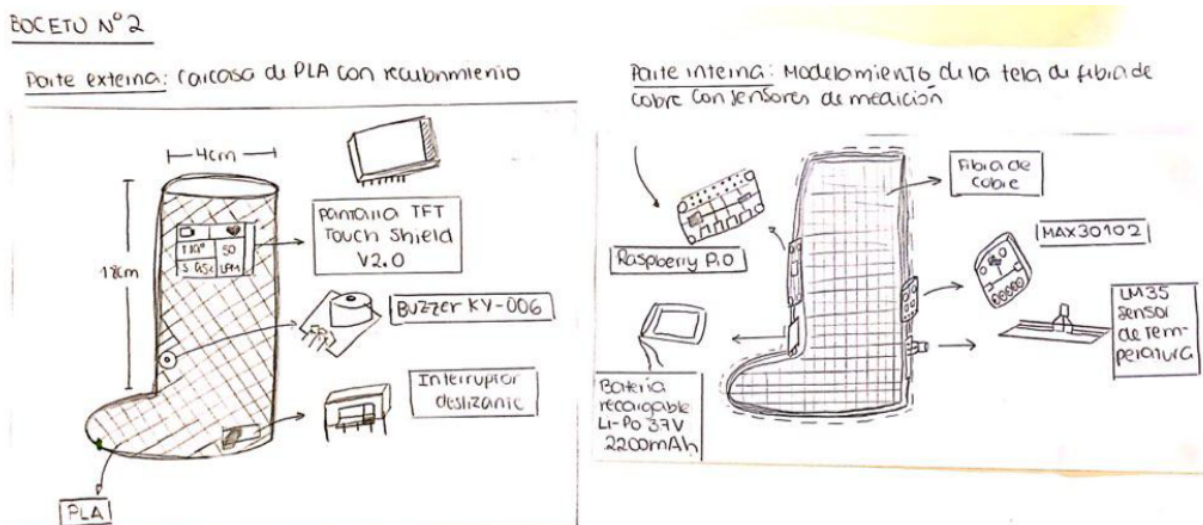 BOCETO N°2
Parte externa: Carcasa de PLA con recubrimiento
4cm
18cm
Pantalla TFT
Touch Shield
V2.0
50
LPM
Buzzer KY-006
Interruptor
deslizante
PLA
Parte interna: Modelamiento de la tela de fibra de
cobre con sensores de medición
Fibra de
cobre
Raspberry Pi 0
MAX30102
LM35
sensor
de Tem-
peratura
Batería
recargable
Li-Po 3.7V
2200mAh